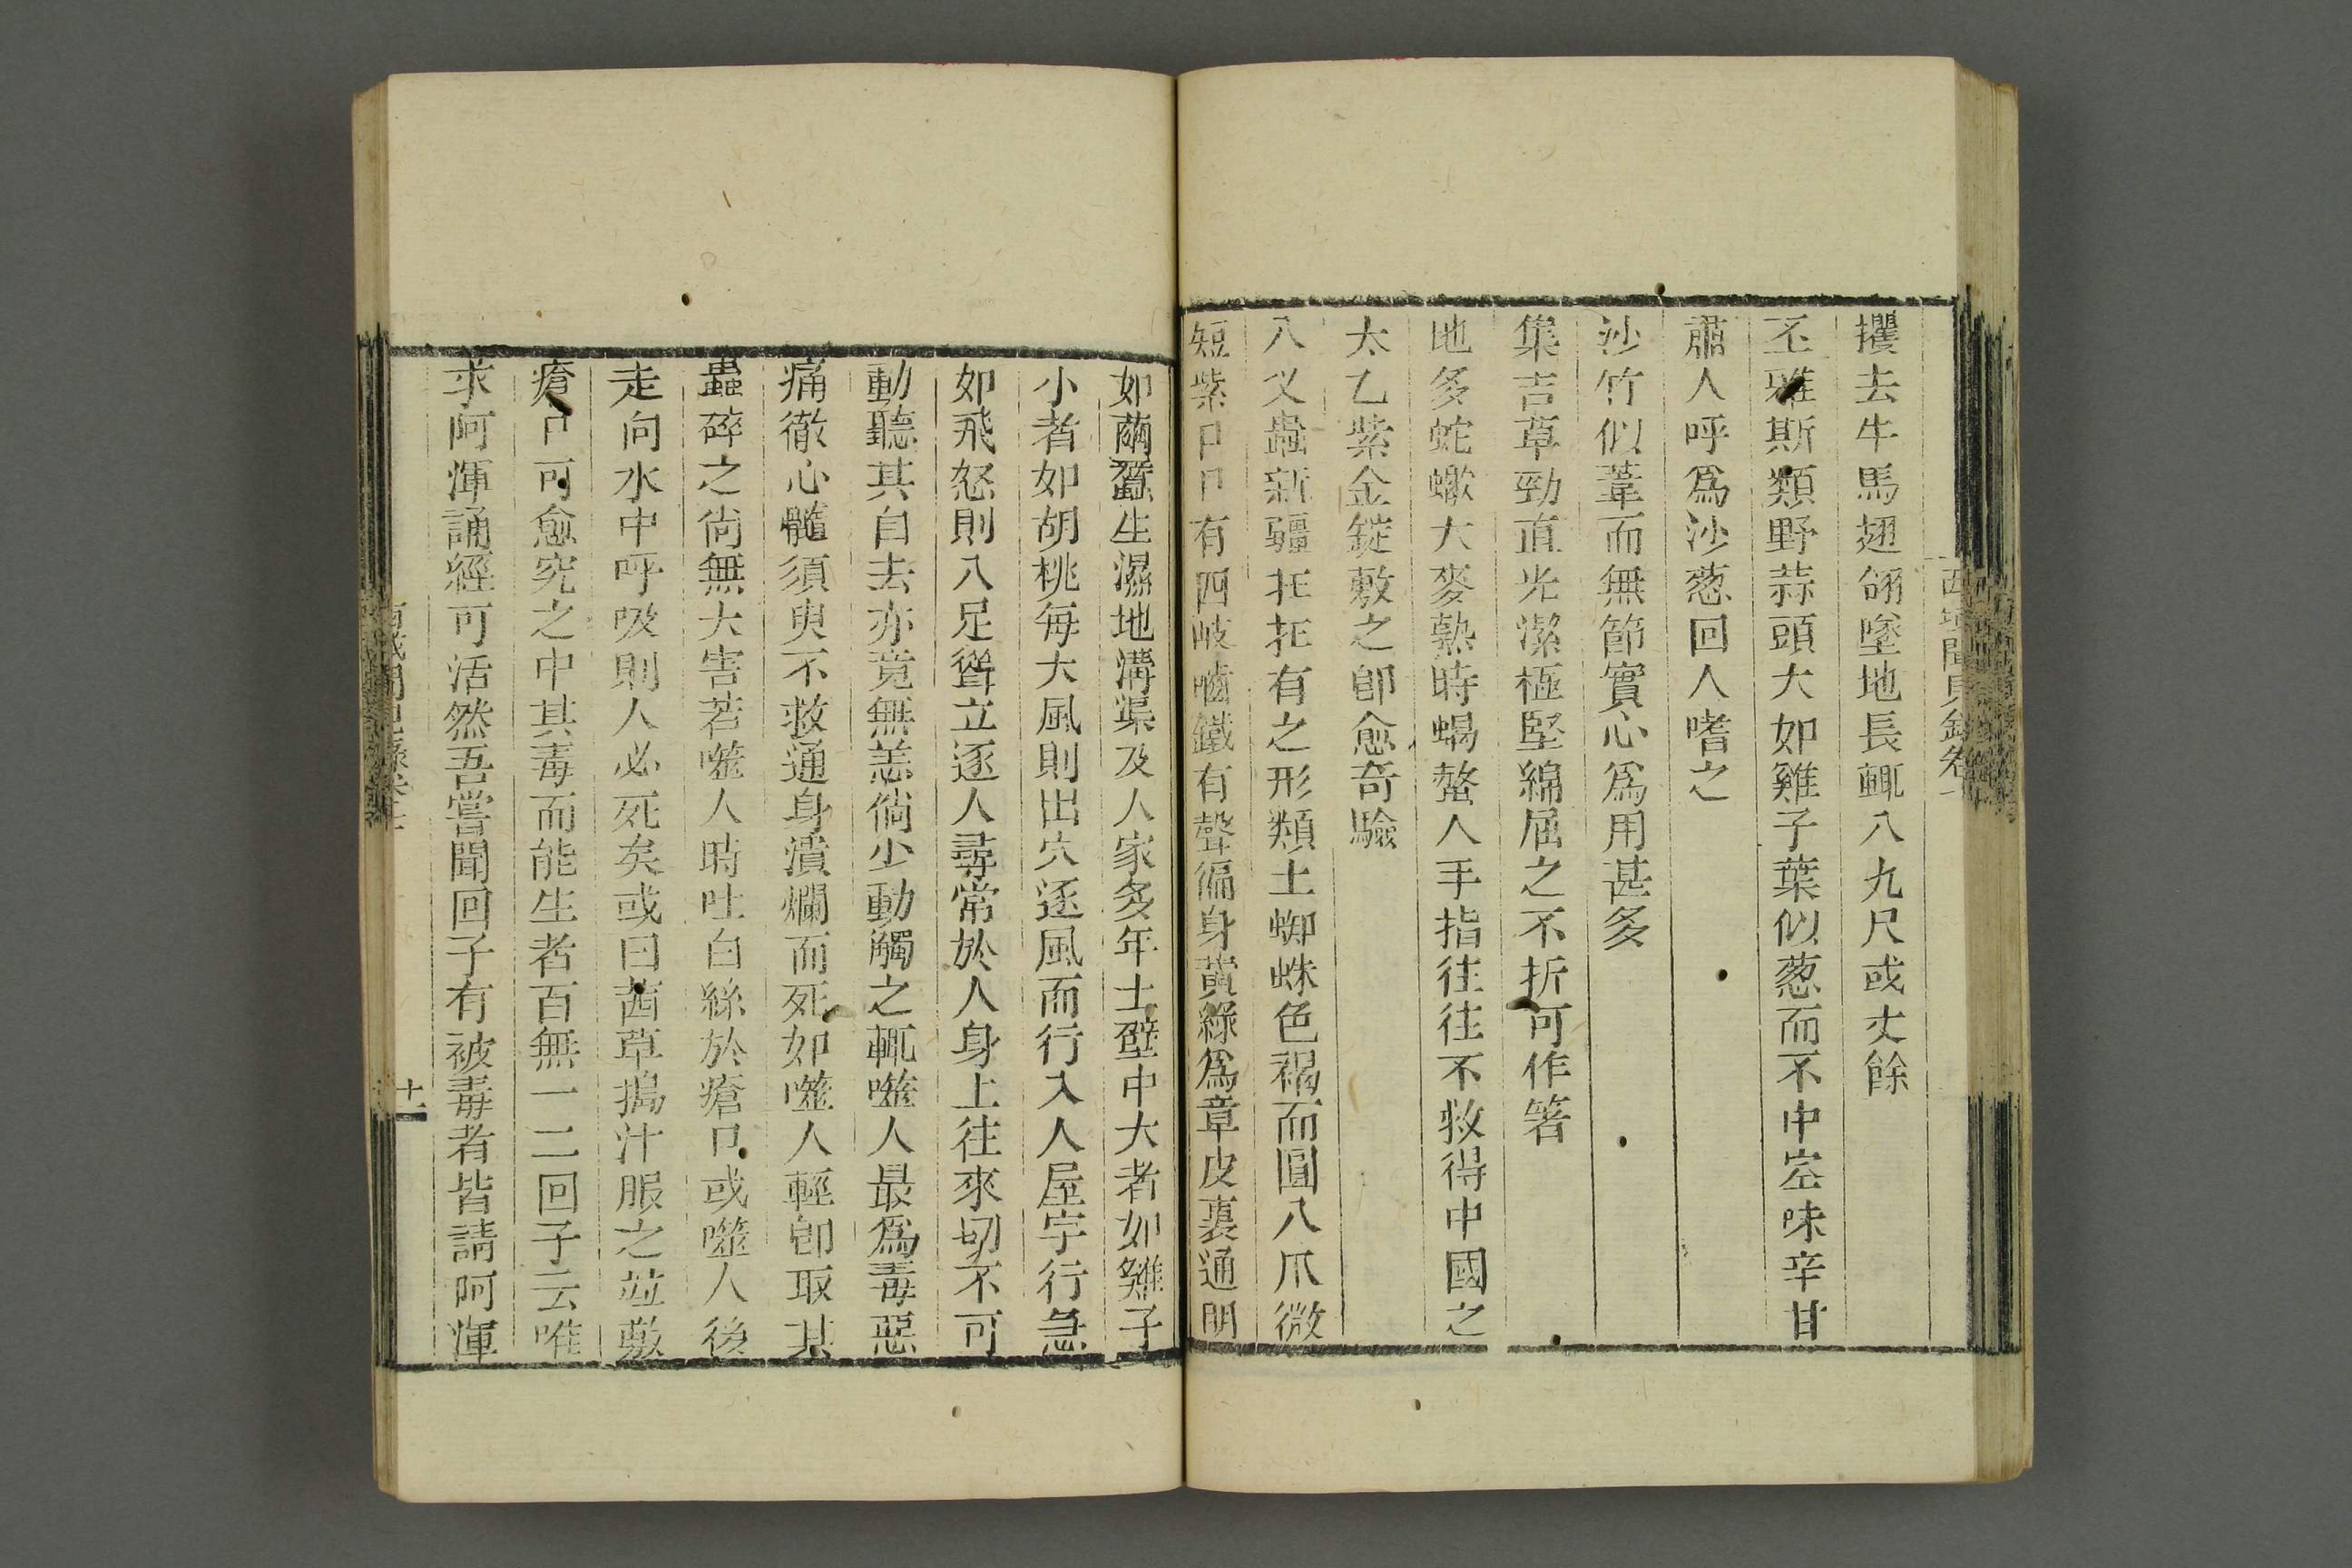 攫去牛馬翅翎墜地長輒八九尺或丈餘
丕雅斯類野蒜頭大如雞子葉似葱而不中空味辛甘
肅人呼爲沙葱回人嗜之
沙竹似葦而無節實心爲用甚多
集吉草勁直光潔極堅綿屈之不折可作箸
地多蛇蠍大麥熟時蝎螫人手指往往不救得中國之
太乙紫金錠敷之卽愈奇驗
八叉蟲新疆在在有之形類土蜘蛛色褐而圓八爪微
短紫口口有四岐嚙鐵有聲徧身黄綠爲章皮裏通明
如繭蠶生濕地溝渠及人家多年土壁中大者如雞子
小者如胡桃每大風則出穴逐風而行入人屋宇行急
如飛怒則八足聳立逐人尋常於人身上往來切不可
動聽其自去亦竟無恙倘少動觸之輒噬人最爲毒惡
痛徹心髓須臾不救通身潰爛而死如噬人輕卽取其
蟲碎之尙無大害若噬人時吐白絲於瘡口或噬人後
走向水中呼吸則人必死矣或曰茜草搗汁服之並敷
瘡口可愈究之中其毒而能生者百無一二回子云唯
求阿渾誦經可活然吾嘗聞回子有被毒者皆請阿渾
十一